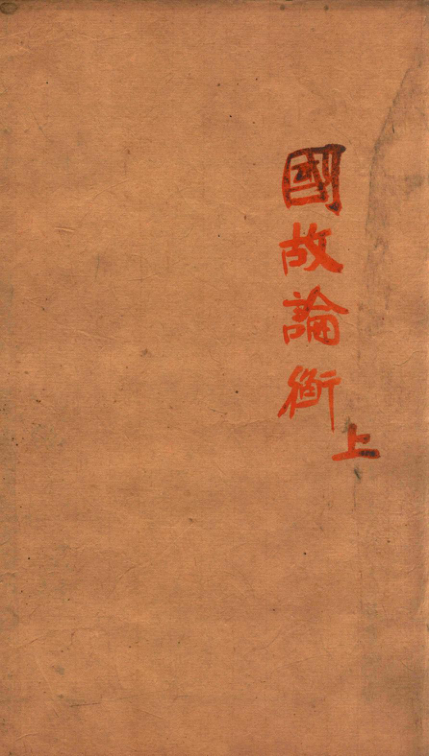 國故論衡
上